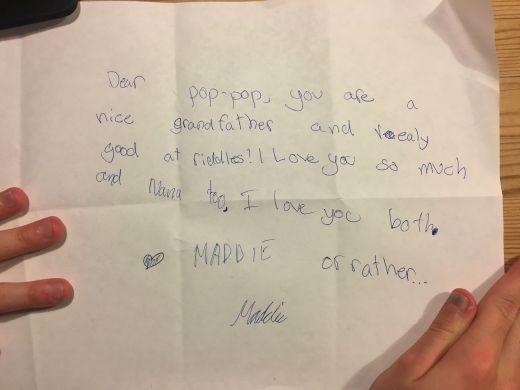 Dear pop-pop, you are a
nice grandfather and realy
good at riddles! I Love you so much
and Nana too. I love you both.
MADDIE or rather...
Maddie